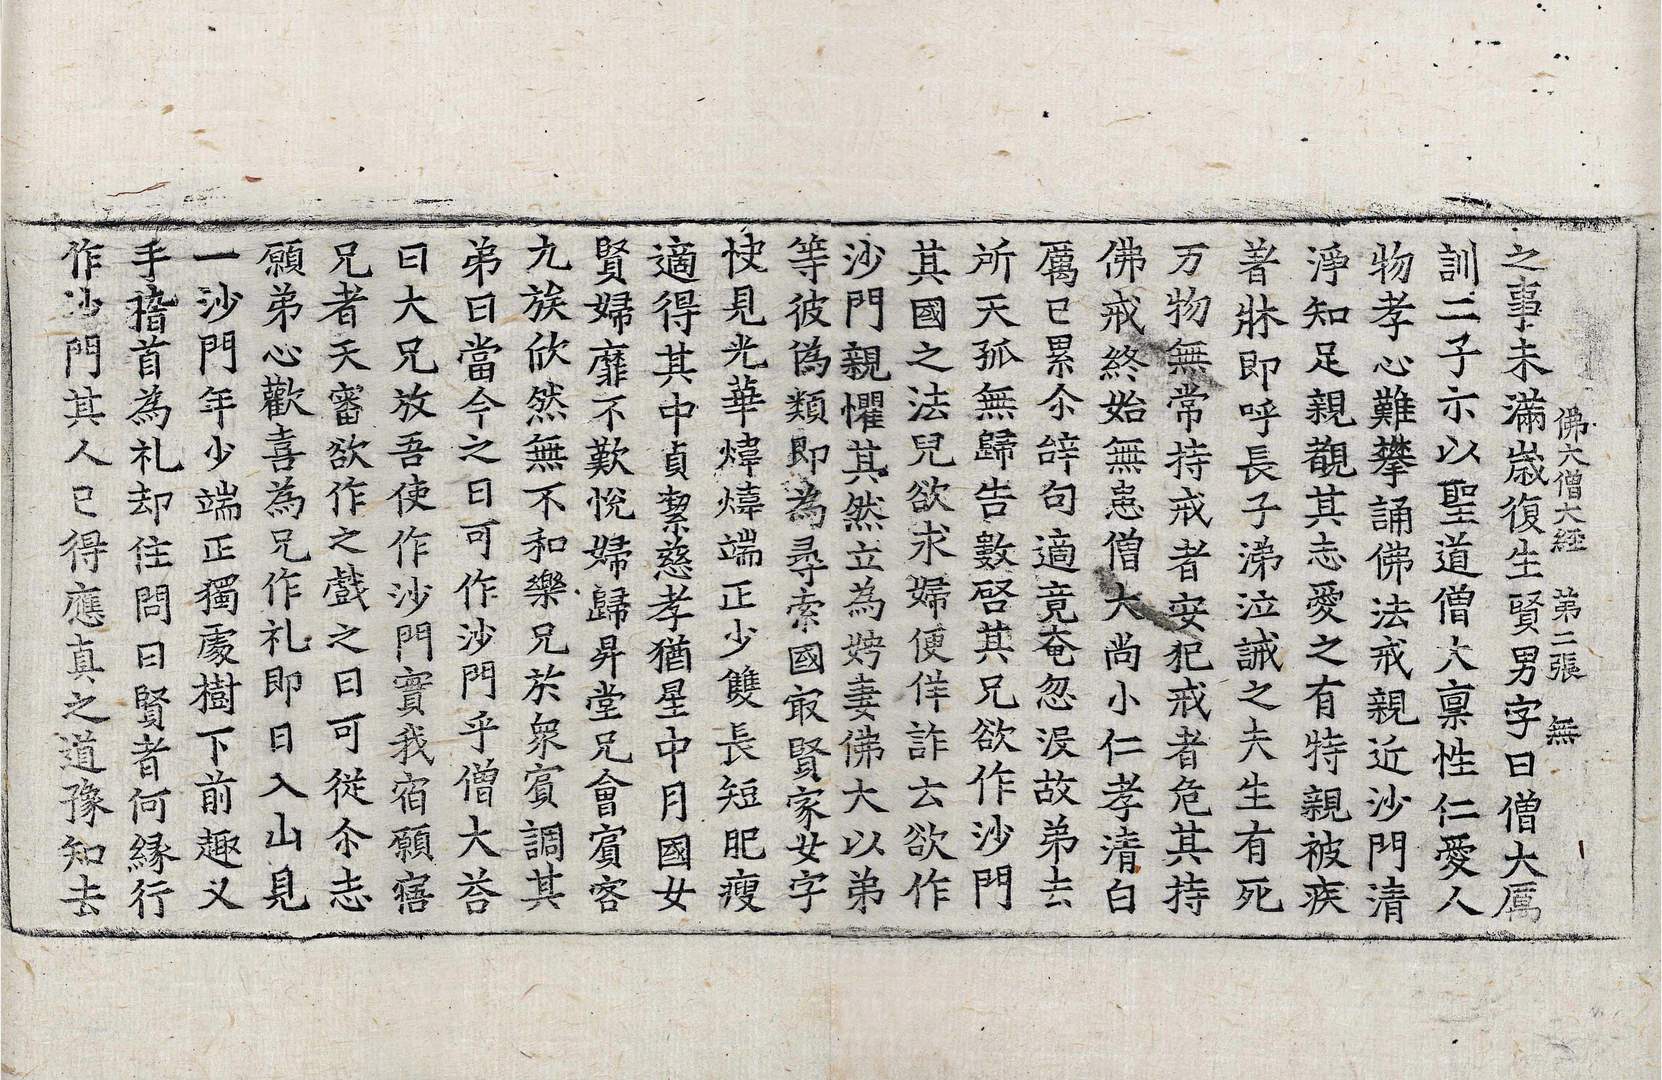 佛大僧大經 第二張 無
之事未滿歲復生賢男字曰僧大厲
訓二子示以聖道僧大稟性仁愛人
物孝心難攀誦佛法戒親近沙門清
淨知足親觀其志愛之有特親被疾
著牀即呼長子涕泣誡之夫生有死
万物無常持戒者安犯戒者危其持
佛戒終始無患僧大尚小仁孝清白
厲已累尒辝句適竟奄忽沒故弟去
所天孤無歸告數啓其兄欲作沙門
其國之法兒欲求婦便佯詐去欲作
沙門親懼其然立為娉妻佛大以弟
等彼偽類即為尋索國㝡賢家女字
快見光華煒煒端正少雙長短肥瘦
適得其中貞絜慈孝猶星中月國女
賢婦靡不歎悅婦歸昇堂兄會賓客
九族欣然無不和樂兄於衆賓調其
弟曰當今之日可作沙門乎僧大荅
曰大兄放吾使作沙門實我宿願㝛
兄者天審欲作之戲之曰可從尒志
願弟心歡喜為兄作礼即日入山見
一沙門年少端正獨處樹下前趣义
手稽首為礼却住問曰賢者何緣行
作沙門其人已得應真之道豫知去